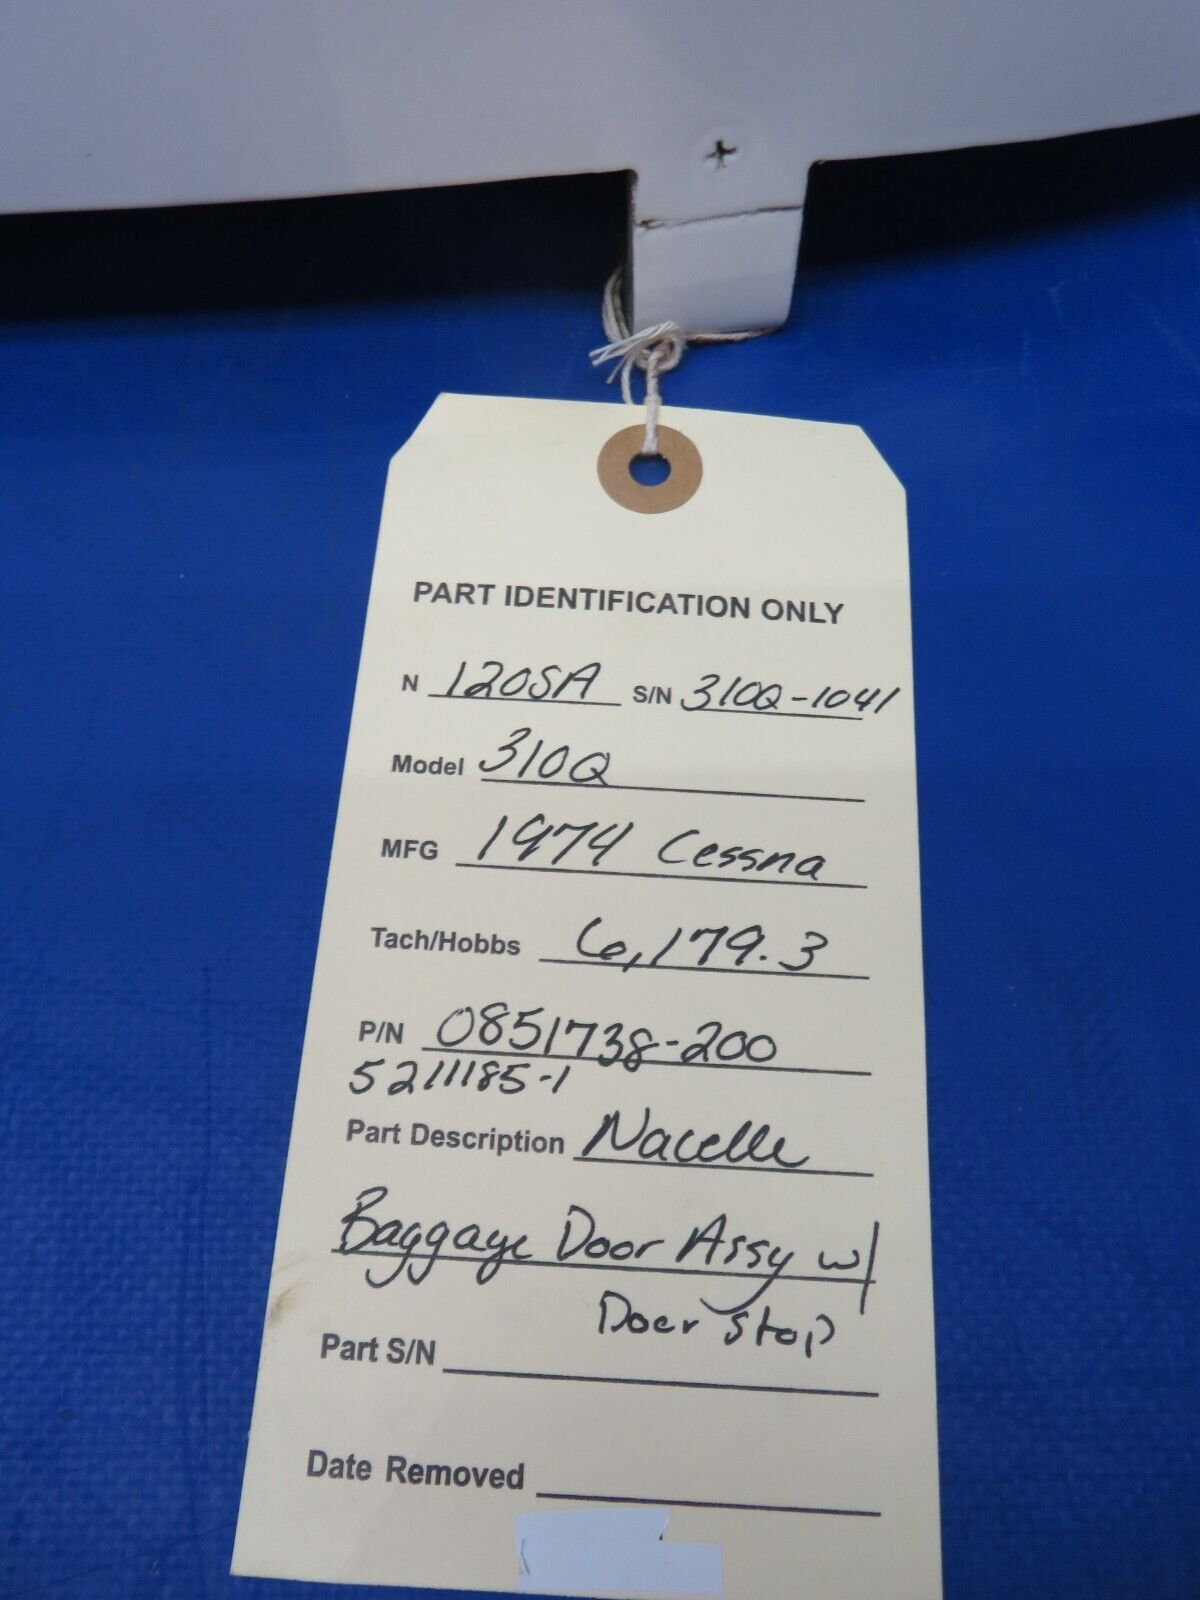 PART IDENTIFICATION ONLY
N 120SA S/N 310Q-1041
Model 310Q
MFG 1974 Cessna
Tach/Hobbs 6,179.3
P/N 0851738-200
5211185-1
Part Description Nacelle
Baggage Door Assy w/
Door Stop
Part S/N
Date Removed